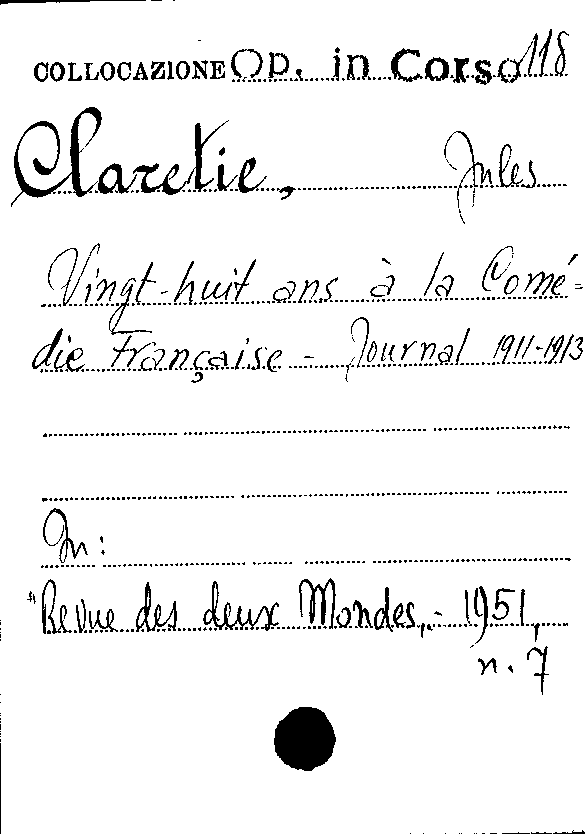 COLLOCAZIONE Op. in Corso 118
Claretie, Jules
Vingt-huit ans à la Comé-
die Française - Journal 1911-1913
In:
"Revue des deux Mondes,- 1951,
n. 7